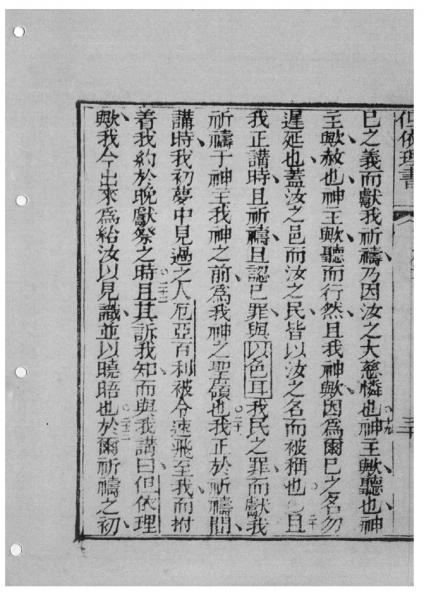 但依理書
已之義而獻我祈禱乃因汝之大慈憐也〇十九神主歟聽也神
主歟赦也神主歟聽而行然且我神歟因為爾已之名勿
遲延也蓋汝之邑而汝之民皆以汝之名而被稱也〇二十且
我正講時且祈禱且認已罪與以色耳我民之罪而獻我
祈禱于神主我神之前為我神之聖嶺也〇二十一我正於祈禱間
講時我初夢中見過之人厄亞百利被令速飛至我而拊
着我約於晚獻祭之時〇二十二且其訴我知而與我講曰但依理
歟我今出來為給汝以見識並以曉晤也〇二十三於爾祈禱之初